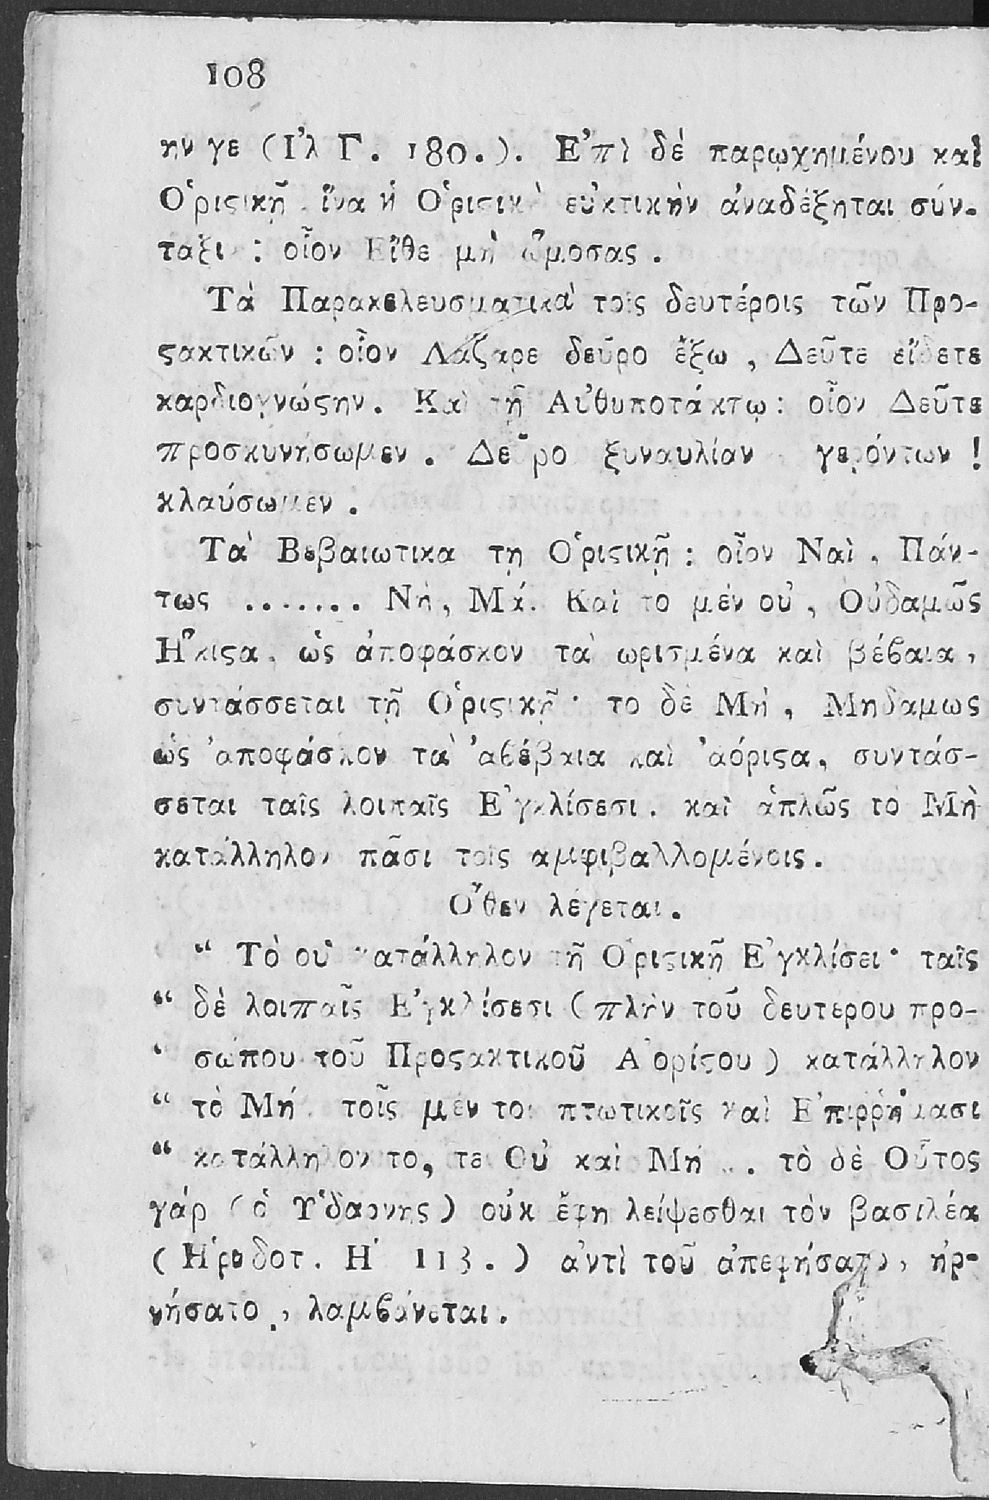 108
ην γε (Ἰλ Γ. 180.). Ἐπὶ δὲ παρῳχημένου καὶ
Ὁριϛικῇ ἵνα ἡ Ὁριϛικὴ εὐκτικὴν ἀναδέξηται σύν-
ταξι : οἷον Εἴθε μὴ ὤμοσας .
Τὰ Παρακελευσματικὰ τοῖς δευτέροις τῶν Προ-
ϛακτικῶν : οἷον Λάζαρε δεῦρο ἔξω , Δεῦτε εἴδετε
καρδιογνώϛην. Καὶ τῇ Αὐθυποτάκτῳ : οἷον Δεῦτε
προσκυνήσωμεν . Δεῦρο ξυναυλίαν γερόντων !
κλαύσωμεν .
Τὰ Βεβαιωτικα τῃ Ὁριϛικῇ : οἷον Ναὶ , Πάν-
τως ....... Νὴ, Μά. Καὶ το μὲν οὐ , Οὐδαμῶς
Ἥκιϛα, ὡς ἀποφάσκον τὰ ωρισμένα καὶ βέβαια ,
συντάσσεται τῇ Ὁριϛικῇ · το δὲ Μὴ , Μηδαμως
ὡς ἀποφάσκον τὰ ἀβέβαια καὶ ἀόριϛα, συντάσ-
σεται ταῖς λοιπαῖς Ἐγκλίσεσι . καὶ ἁπλῶς το Μὴ
κατάλληλον πᾶσι τοῖς αμφιβαλλομένοις .
Ὅθεν λέγεται .
“ Τὸ οὐ κατάλληλον τῇ Ὁριϛικῇ Ἐγκλίσει · ταῖς
“ δὲ λοιπαῖς Ἐγκλίσεσι ( πλὴν τοῦ δευτερου προ-
‘ σώπου τοῦ Προϛακτικοῦ Ἀορίϛου ) κατάλληλον
“ τὸ Μή . τοῖς μὲν τοι πτωτικοῖς καὶ Ἐπιῤῥήμασι
“ κατάλληλον το, τε Οὐ καὶ Μή ... τὸ δὲ Οὗτος
γάρ ( ὁ Ὑδάρνης ) οὐκ ἔφη λείψεσθαι τὸν βασιλέα
( Ἡροδοτ. Η 113. ) ἀντὶ τοῦ ἀπεφήσατο , ἠρ-
νήσατο , λαμβάνεται .